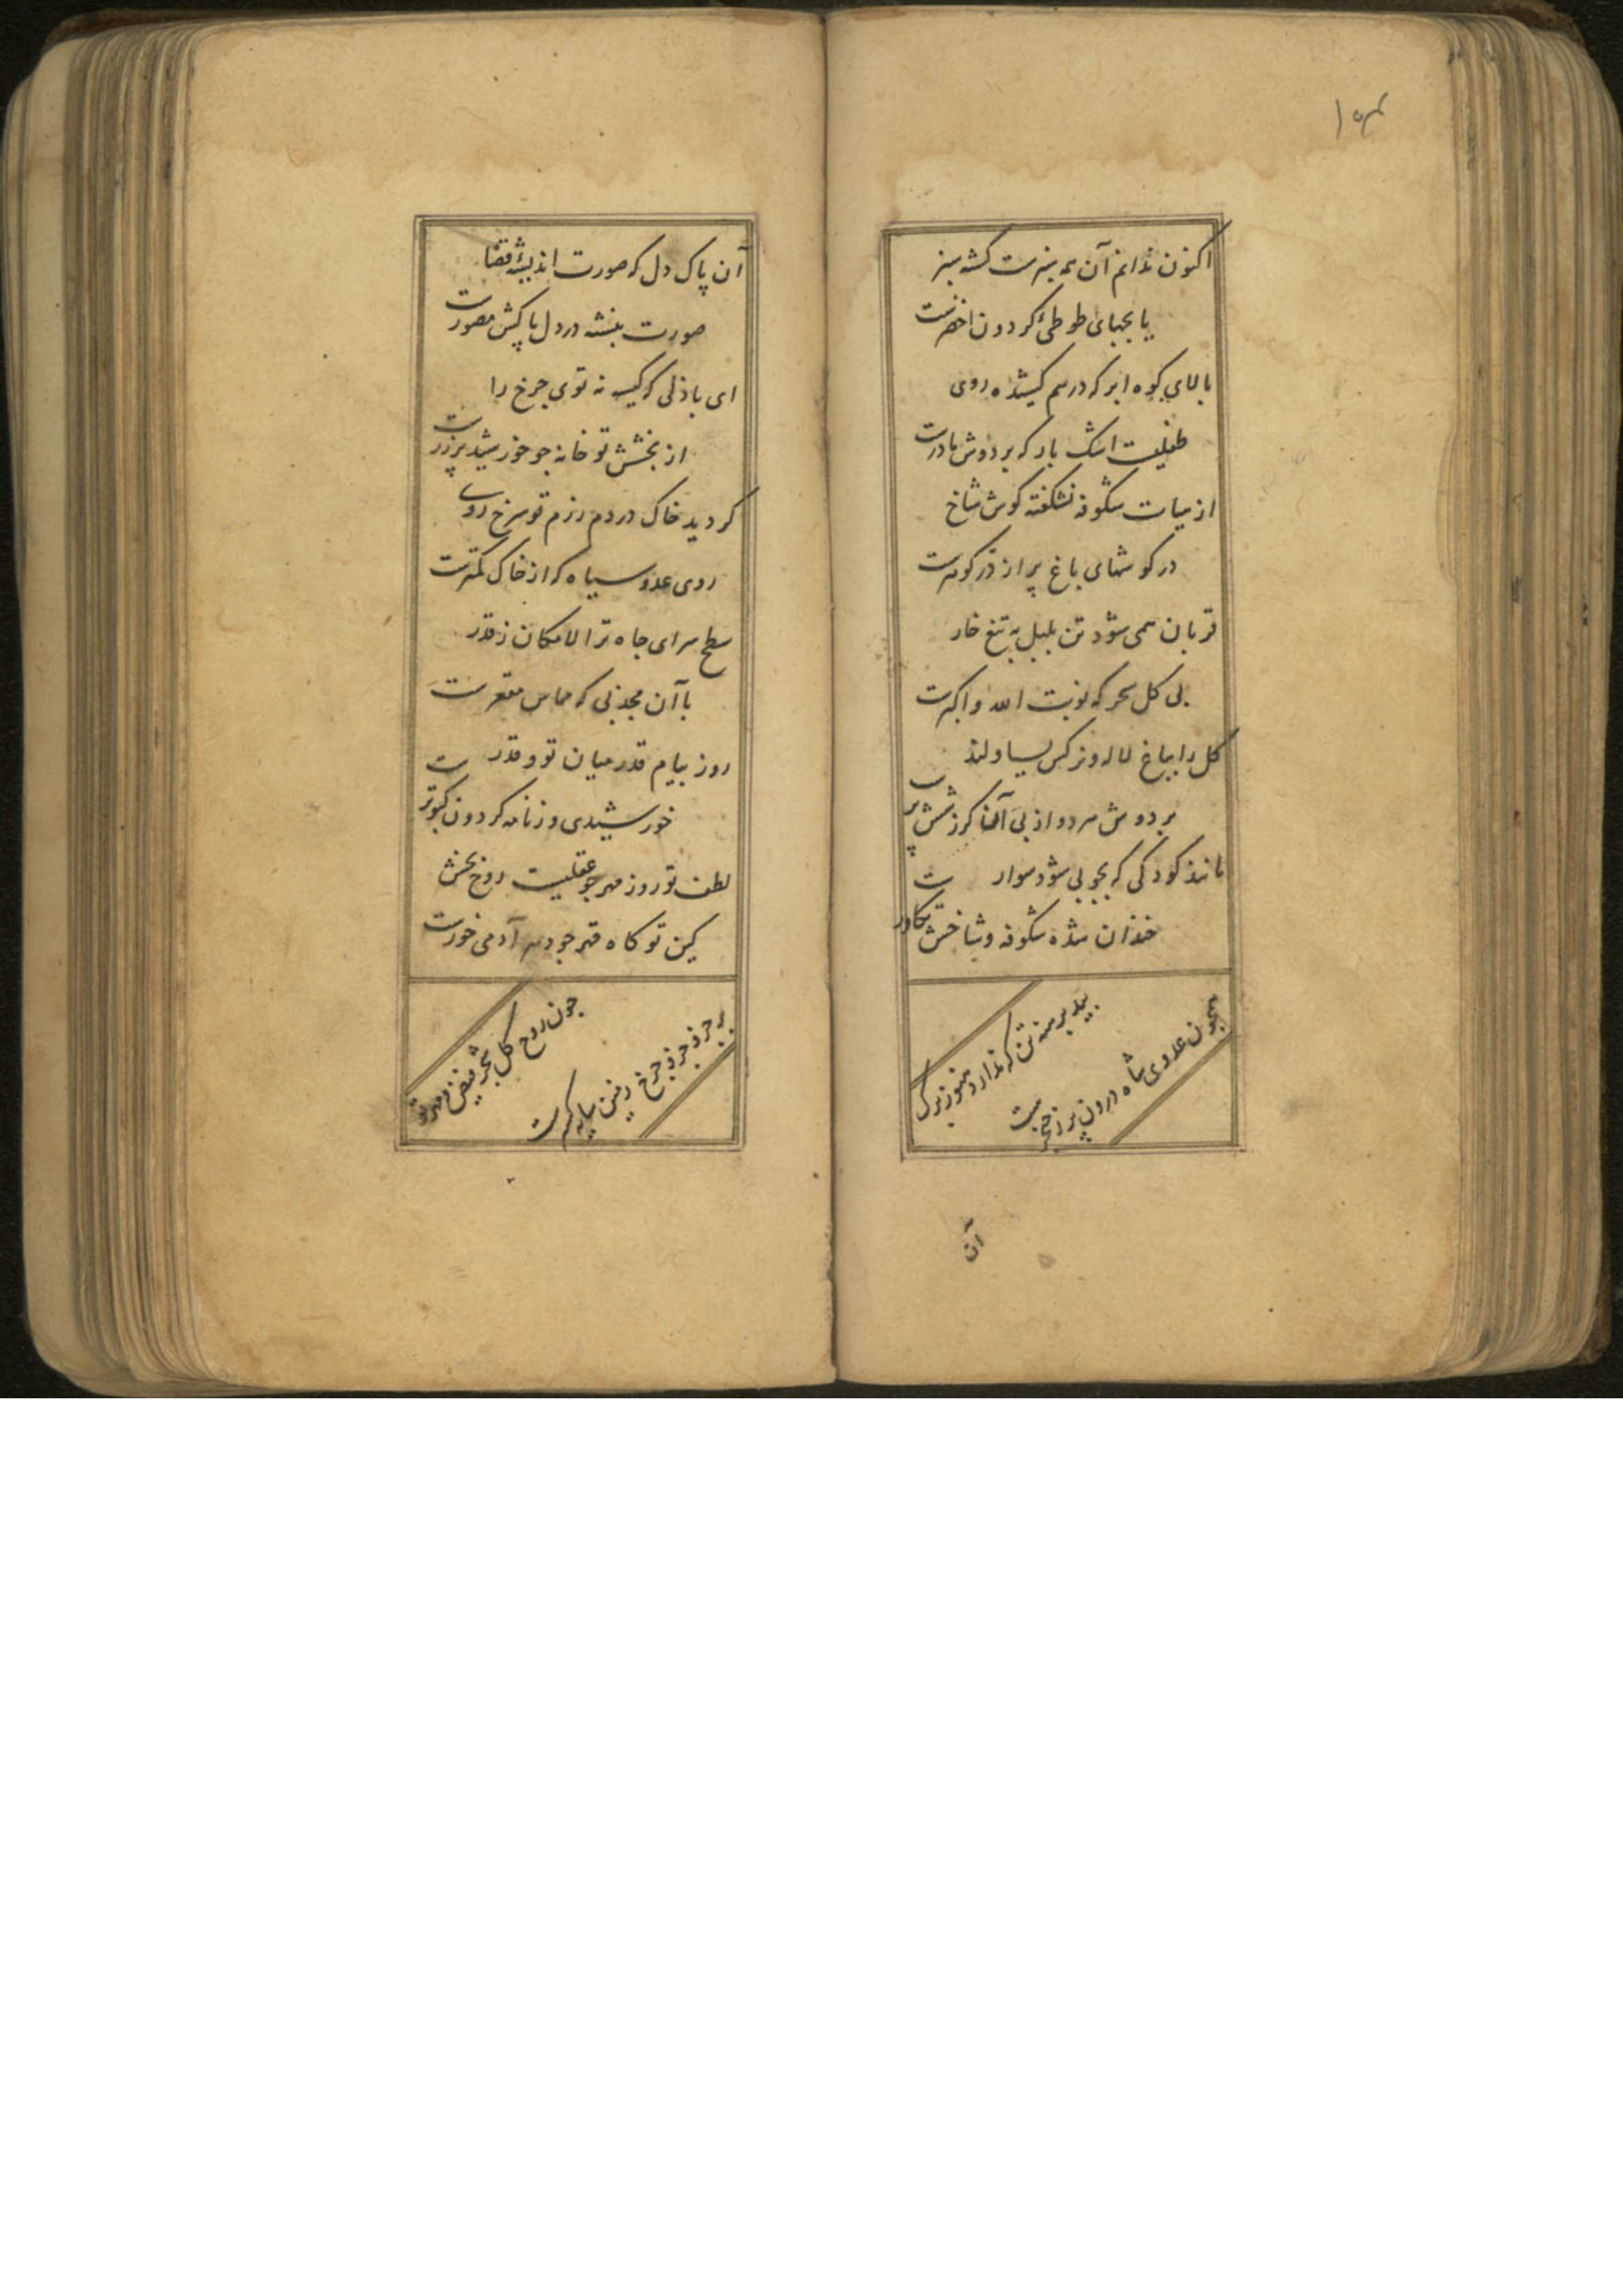 ۱۵۴
اکنون ندانم آن همه سبزست کشته سبز
یا بچهای طوطیٔ کردون اخضرست
بالای کوه ابر که درهم کشیده روی
طفلیست اشک بار که بر دوش مادرست
از میات شکوفه نشکفته کوش شاخ
در کوشهای باغ پر از در کوهرست
قربان همی شود تن بلبل به تیغ خار
بی کل سحر که نوبت الله و اکبرست
کل را بباغ لاله و نرکس یساولند
بر دوش هر دو از پی آن کرز شش پرست
مانند کودکی که بچوبی شود سوار
خندان شده شکوفه و شاخش تکاورست
بید برهنه تن که ندارد هنوز برک
همچون عدوی شاه درون پر ز خنجرست
آن
آن پاک دل که صورت اندیشهٔ قضا
صورت ببسته در دل پاکش مصورست
ای باذلی که کیسه نه توی چرخ را
از بخشش تو خانه جو خورشید پر زرست
کردید خاک در دم رزم تو سرخ روی
روی عدو سیاه که از خاک کمترست
سطح سرای جاه ترا لامکان ز قدر
با آن محدبی که مماس مقعرست
روز پیام قدر میان تو و قدر
خورشیدی وز نامه کردون کبوترست
لطف تو روز مهر جو عقلیست روح بخش
کین تو کاه قهر جو دهر آدمی خورست
جون روح کل بحر فیض
بر حرف حرف جرخ پایه